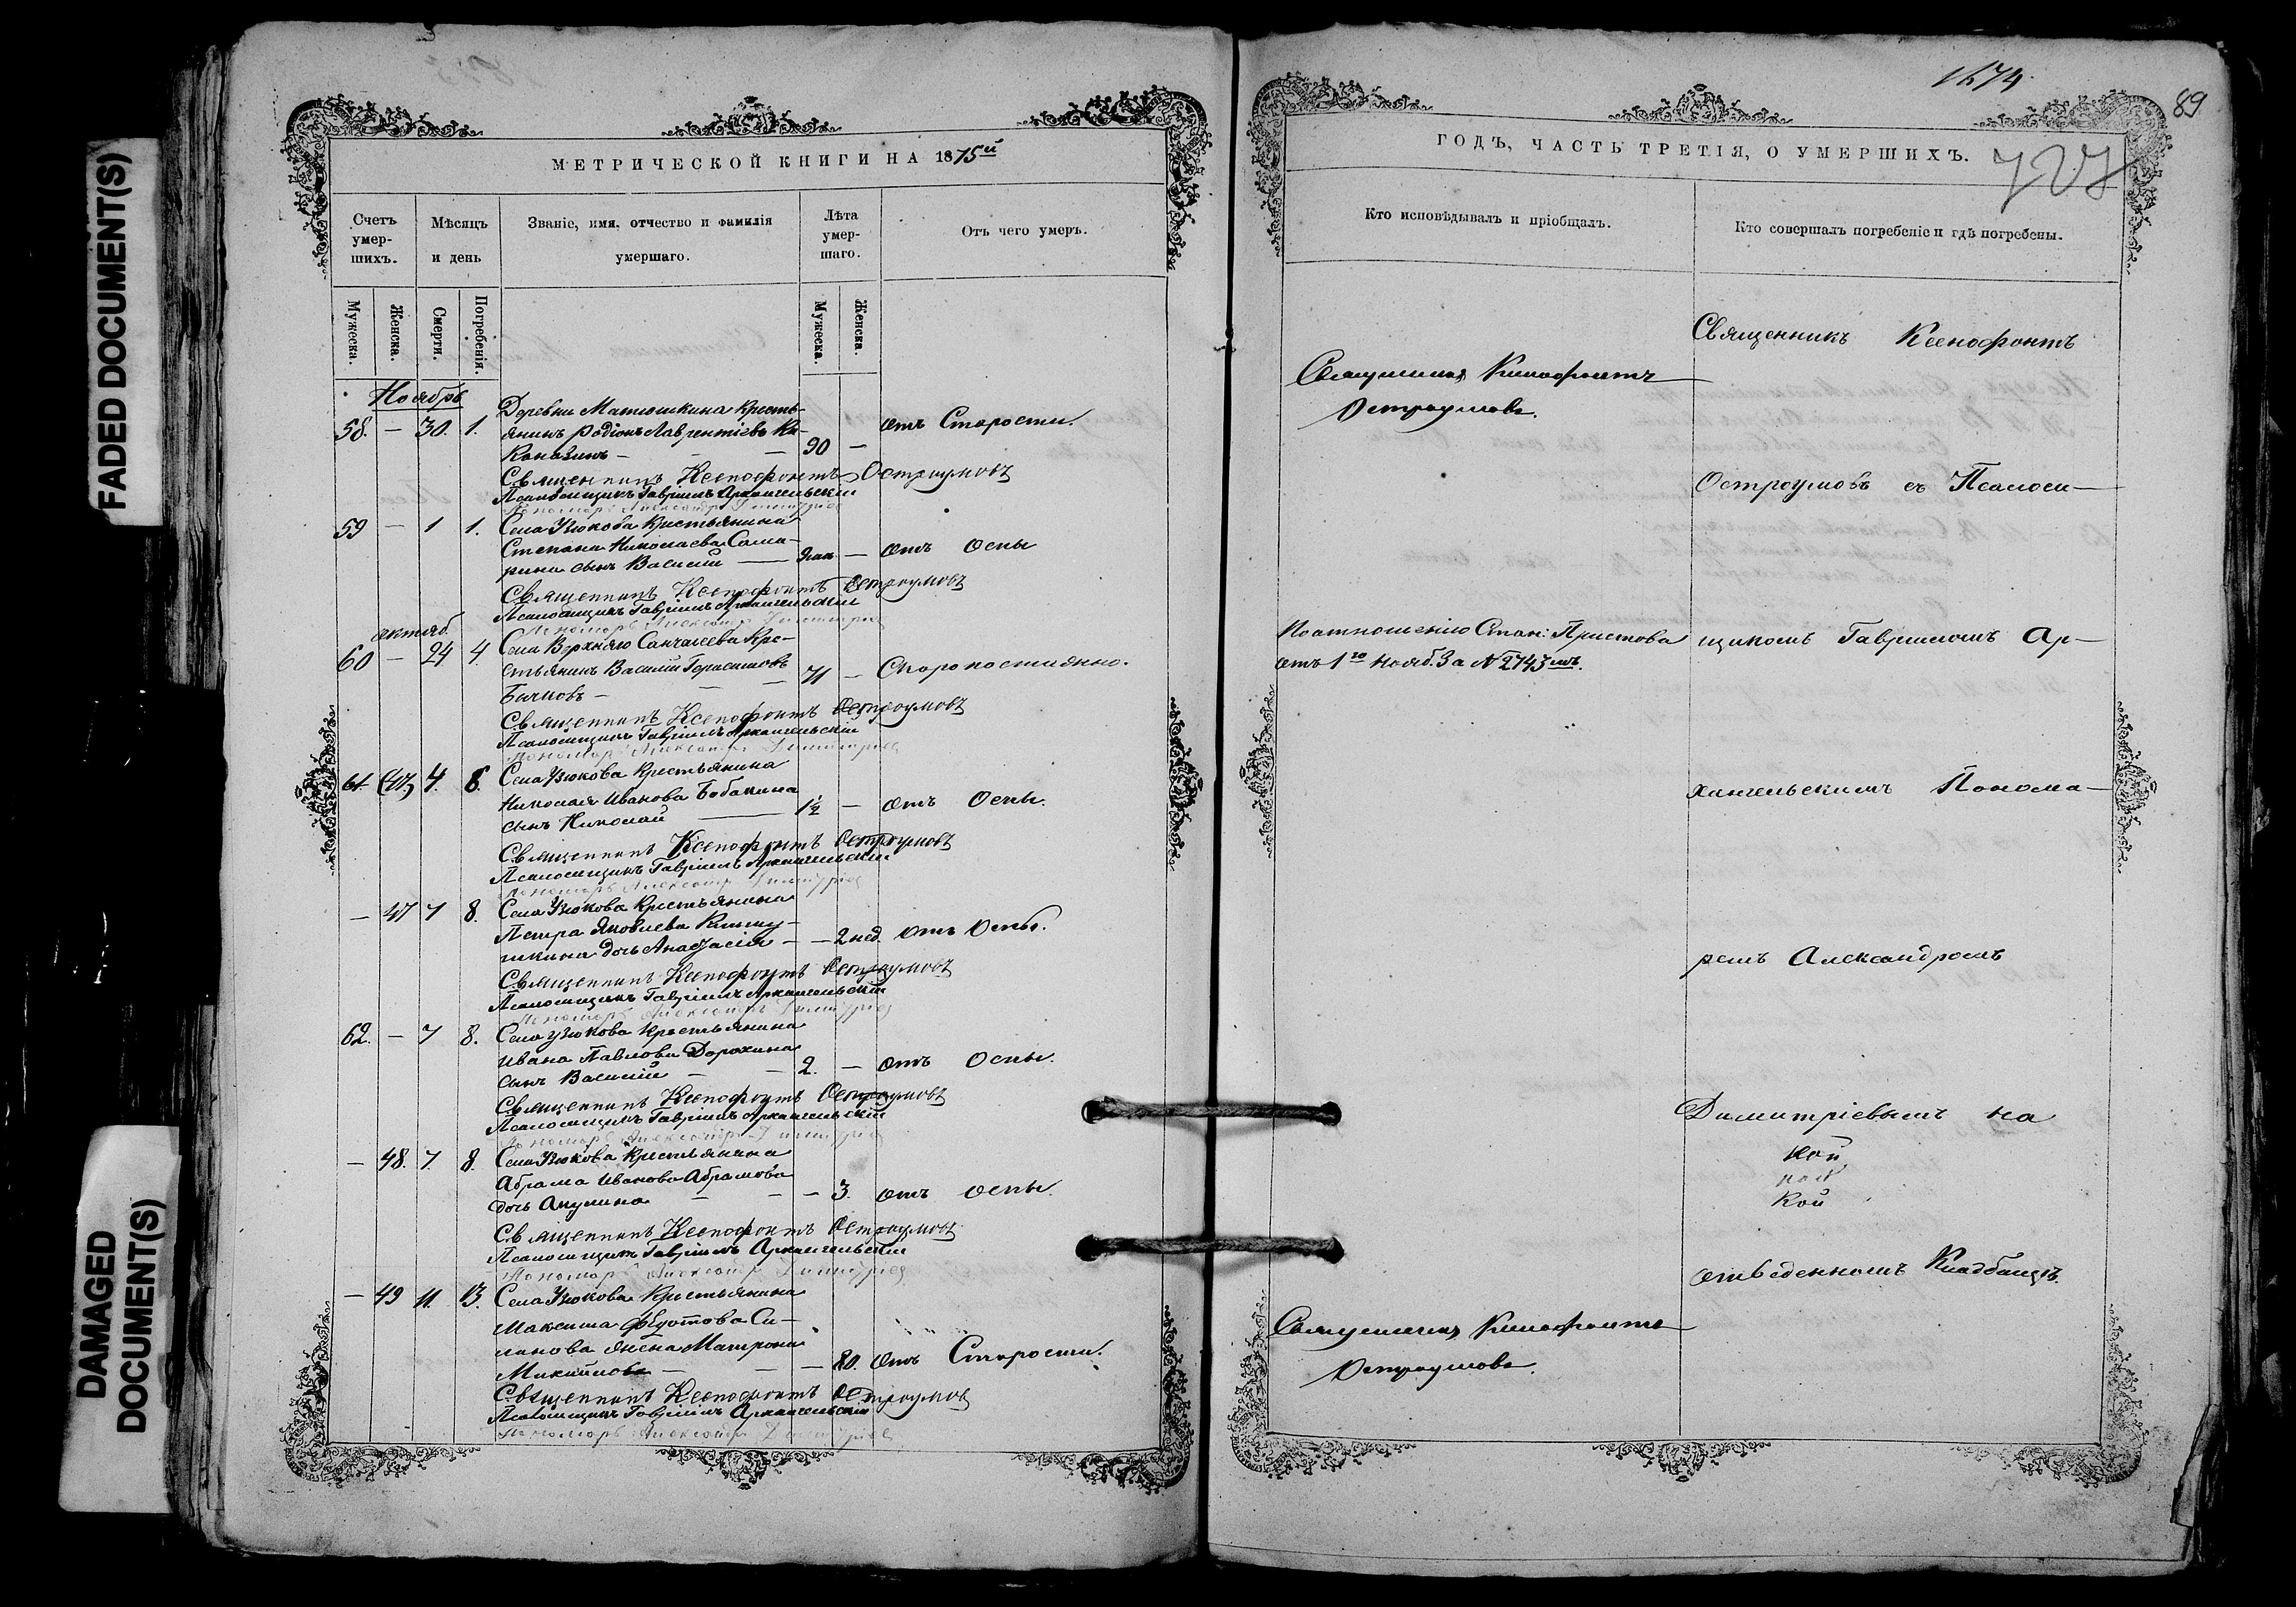 FADED DOCUMENT(S)
DAMAGED
DOCUMENT(S)
МЕТРИЧЕСКОЙ КНИГИ НА 1875й
Счетъ умер- шихъ.
Мѣсяцъ и день
Званіе, имя, отчество и фамилія умершаго.
Лѣта умер- шаго.
Отъ чего умеръ.
Мужеска.
Женска.
Смерти.
Погребенія.
Мужеска.
Женска.
Ноябрь
Деревни Матюшкина кресть-
58. — 30. 1. янинъ Родіонъ Лаврентіевъ Ка- отъ Старости.
— — 90 —
Священникъ Ксенофонтъ Остроумовъ
Псаломщикъ Гавріилъ Архангельскій
Пономарь Александръ Димитріев
59 — 1 1. Села Узюкова Крестьянина
Степана Николаева Сама-
рина сынъ Василій — — отъ Оспы
Священникъ Ксенофонтъ Остроумовъ
Псаломщикъ Гавріилъ Архангельскій
Пономарь Александръ Димитріев
октяб.
60 — 24 4. Села Верхняго Санчалеева Кре-
стьянинъ Василій Герасимовъ
— — 71 — Скоропостижно.
Священникъ Ксенофонтъ Остроумовъ
Псаломщикъ Гавріилъ Архангельскій
Пономарь Александръ Димитріев
61. 4. 8. Села Узюкова Крестьянина
Николая Иванова Бабакина
сынъ Николай — 1½ — отъ Оспы.
Священникъ Ксенофонтъ Остроумовъ
Псаломщикъ Гавріилъ Архангельскій
Пономарь Александръ Димитріев
— 47 7 8. Села Узюкова Крестьянина
Петра Яковлева
дочь Анастасія — — 2 нед. отъ Оспы.
Священникъ Ксенофонтъ Остроумовъ
Псаломщикъ Гавріилъ Архангельскій
Пономарь Александръ Димитріев
62. — 7 8. Села Узюкова Крестьянина
Ивана Павлова Дорохина
сынъ Василій — — 2. — отъ Оспы.
Священникъ Ксенофонтъ Остроумовъ
Псаломщикъ Гавріилъ Архангельскій
Пономарь Александръ Димитріев
— 48. 7 8. Села Узюкова Крестьянина
Абрама Иванова Абрамова
дочь Акулина — — — 3. отъ оспы.
Священникъ Ксенофонтъ Остроумовъ
Псаломщикъ Гавріилъ Архангельскій
Пономарь Александръ Димитріев
— 49 11. 13. Села Узюкова Крестьянина
Максима Федотова Си-
ланова жена Матрона
— — — 80. отъ Старости.
Священникъ Ксенофонтъ Остроумов
Псаломщикъ Гавріилъ Архангельскій
Пономарь Александръ Димитріев
1674
89
727
ГОДЪ, ЧАСТЬ ТРЕТІЯ, О УМЕРШИХЪ.
Кто исповѣдывалъ и пріобщалъ.
Кто совершалъ погребеніе и гдѣ погребены.
Священникъ Ксенофонтъ
Священникъ Ксенофонтъ
Остроумовъ.
Остроумовъ съ Псалом-
По отношенію Стан: Пристава
отъ 1го Нояб. За № 2743мъ.
щикомъ Гавріиломъ Ар-
хангельскимъ Понома-
ремъ Александромъ
Димитріевымъ на
кой
кой
кой
отведенномъ Кладбищѣ.
Священникъ Ксенофонтъ
Остроумовъ.